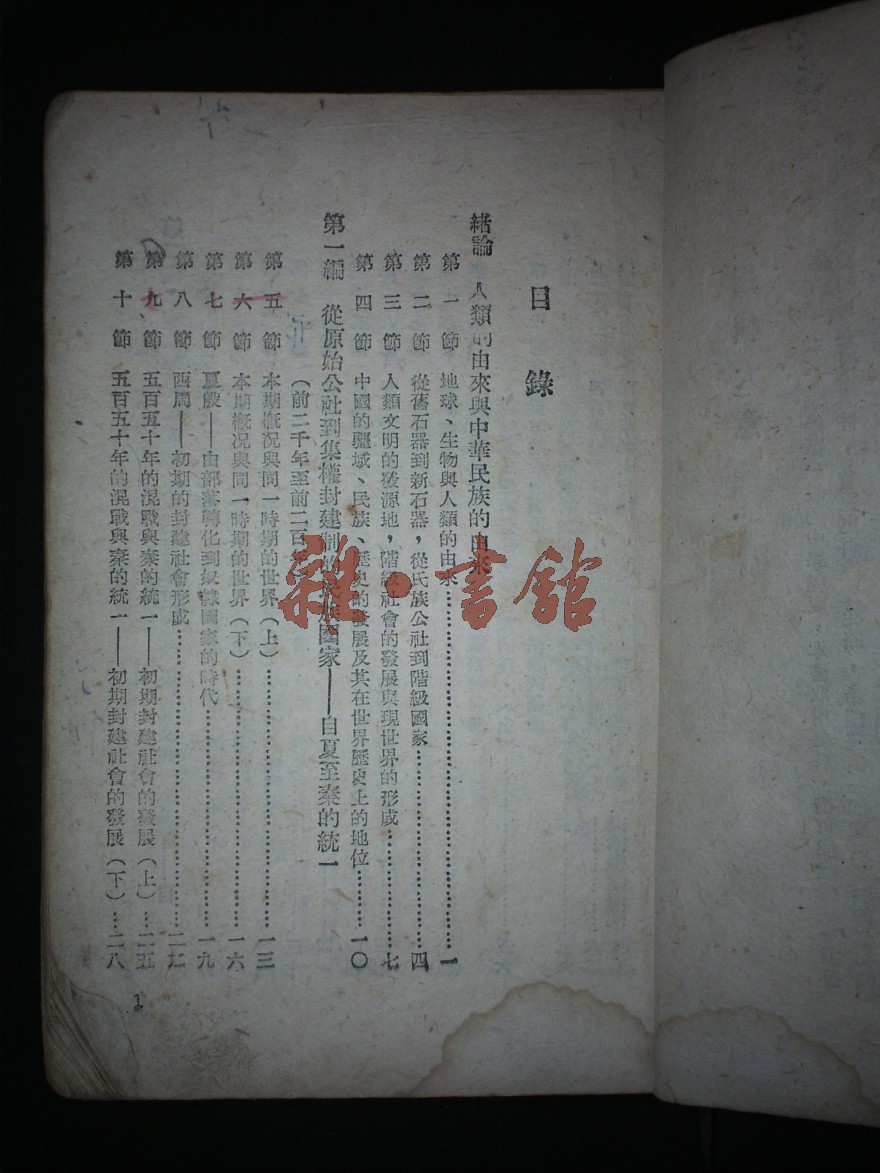 目錄
緒論 人類的由來與中華民族的由來
第一節 地球、生物與人類的由來……一
第二節 從舊石器到新石器，從氏族公社到階級國家……四
第三節 人類文明的發源地，階級社會的發展與現世界的形成……七
第四節 中國的疆域、民族、歷史的發展及其在世界歷史上的地位……一〇
第一編 從原始公社到集權封建制的民族國家——自夏至秦的統一
（前二千年至前二百年）
第五節 本期概況與同一時期的世界（上）……一三
第六節 本期概況與同一時期的世界（下）……一六
第七節 夏殷——由部落轉化到奴隸國家的時代……一九
第八節 西周——初期的封建社會形成……二二
第九節 五百五十年的混戰與秦的統一——初期封建社會的發展（上）…二五
第十節 五百五十年的混戰與秦的統一——初期封建社會的發展（下）…二八
1
雜·書館